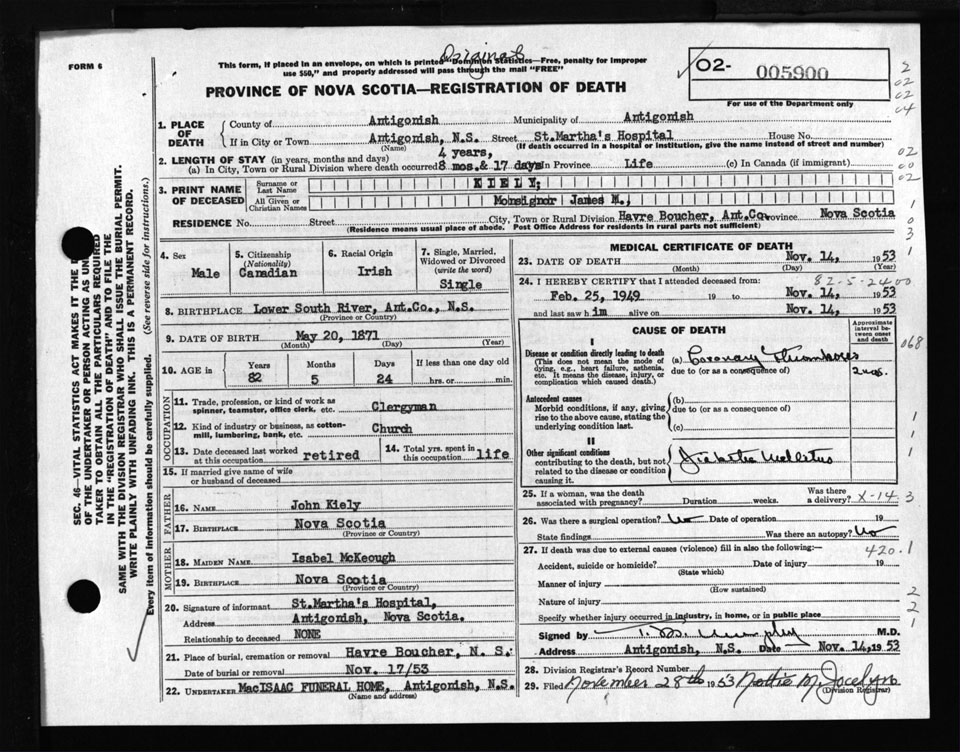 Original
FORM 6
This form, if placed in an envelope, on which is printed "Dominion Statistics—Free, penalty for improper
use $50," and properly addressed will pass through the mail "FREE"
02- 005900
For use of the Department only
PROVINCE OF NOVA SCOTIA—REGISTRATION OF DEATH
1. PLACE OF DEATH
County of Antigonish Municipality of Antigonish
If in City or Town Antigonish, N.S. Street St.Martha's Hospital House No.
(Name) (If death occurred in a hospital or institution, give the name instead of street and number)
2. LENGTH OF STAY (in years, months and days) 4 years,
(a) In City, Town or Rural Division where death occurred 8 mos.& 17 days in Province Life (c) In Canada (if immigrant)
3. PRINT NAME OF DECEASED
Surname or Last Name KIELY,
All Given or Christian Names Monsignor James M.,
RESIDENCE No. Street City, Town or Rural Division Havre Boucher, Ant.Co. Province Nova Scotia
(Residence means usual place of abode. Post Office Address for residents in rural parts not sufficient)
4. Sex Male
5. Citizenship (Nationality) Canadian
6. Racial Origin Irish
7. Single, Married, Widowed or Divorced (write the word) Single
8. BIRTHPLACE Lower South River, Ant.Co., N.S.
(Province or Country)
9. DATE OF BIRTH May 20, 1871
(Month) (Day) (Year)
10. AGE in Years 82 Months 5 Days 24 If less than one day old hrs. or min.
OCCUPATION
11. Trade, profession, or kind of work as spinner, teamster, office clerk, etc. Clergyman
12. Kind of industry or business, as cotton-mill, lumbering, bank, etc. Church
13. Date deceased last worked at this occupation retired
14. Total yrs. spent in this occupation life
15. If married give name of wife or husband of deceased
FATHER
16. NAME John Kiely
17. BIRTHPLACE Nova Scotia
(Province or Country)
MOTHER
18. MAIDEN NAME Isabel McKeough
19. BIRTHPLACE Nova Scotia
(Province or Country)
20. Signature of informant St.Martha's Hospital,
Address Antigonish, Nova Scotia.
Relationship to deceased NONE
21. Place of burial, cremation or removal Havre Boucher, N. S.
Date of burial or removal Nov. 17/53
22. UNDERTAKER MacISAAC FUNERAL HOME, Antigonish, N.S.
(Name and address)
MEDICAL CERTIFICATE OF DEATH
23. DATE OF DEATH Nov. 14, 1953
(Month) (Day) (Year)
82-5-24 00
24. I HEREBY CERTIFY that I attended deceased from:
Feb. 25, 1949 19 to Nov. 14, 1953
and last saw him alive on Nov. 14, 1953
CAUSE OF DEATH
Approximate interval between onset and death
I
Disease or condition directly leading to death (a) Coronary Thrombosis
(This does not mean the mode of dying, e.g., heart failure, asthenia, etc. It means the disease, injury, or complication which caused death.)
due to (or as a consequence of)
Antecedent causes
Morbid conditions, if any, giving rise to the above cause, stating the underlying condition last.
(b)
due to (or as a consequence of)
(c)
II
Other significant conditions
contributing to the death, but not related to the disease or condition causing it.
Diabetes Mellitus
25. If a woman, was the death associated with pregnancy? Duration weeks. Was there a delivery? X-14
26. Was there a surgical operation? No Date of operation 19
State findings Was there an autopsy? No
27. If death was due to external causes (violence) fill in also the following:— 420.1
Accident, suicide or homicide? Date of injury 19
(State which)
Manner of injury
(How sustained)
Nature of injury
Specify whether injury occurred in industry, in home, or in public place
Signed by M.D.
Address Antigonish, N.S. Date Nov. 14, 1953
28. Division Registrar's Record Number
29. Filed November 28th 1953 Nettie M. Jocelyn
(Division Registrar)
SEC. 46—VITAL STATISTICS ACT MAKES IT THE
OF THE UNDERTAKER OR PERSON ACTING AS
TAKER TO OBTAIN ALL THE PARTICULARS REQUIRED
IN THE "REGISTRATION OF DEATH" AND TO FILE THE
SAME WITH THE DIVISION REGISTRAR WHO SHALL ISSUE THE BURIAL PERMIT.
WRITE PLAINLY WITH UNFADING INK. THIS IS A PERMANENT RECORD.
Every item of information should be carefully supplied. (See reverse side for instructions.)
2
02
02
04
02
00
02
1
0
3
068
1
1
1
3
2
2
1